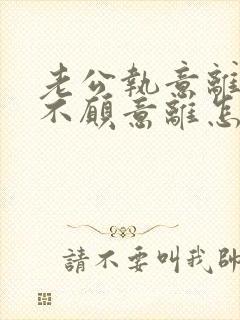 老公執意離
不願意離怎
請不要叫我帥